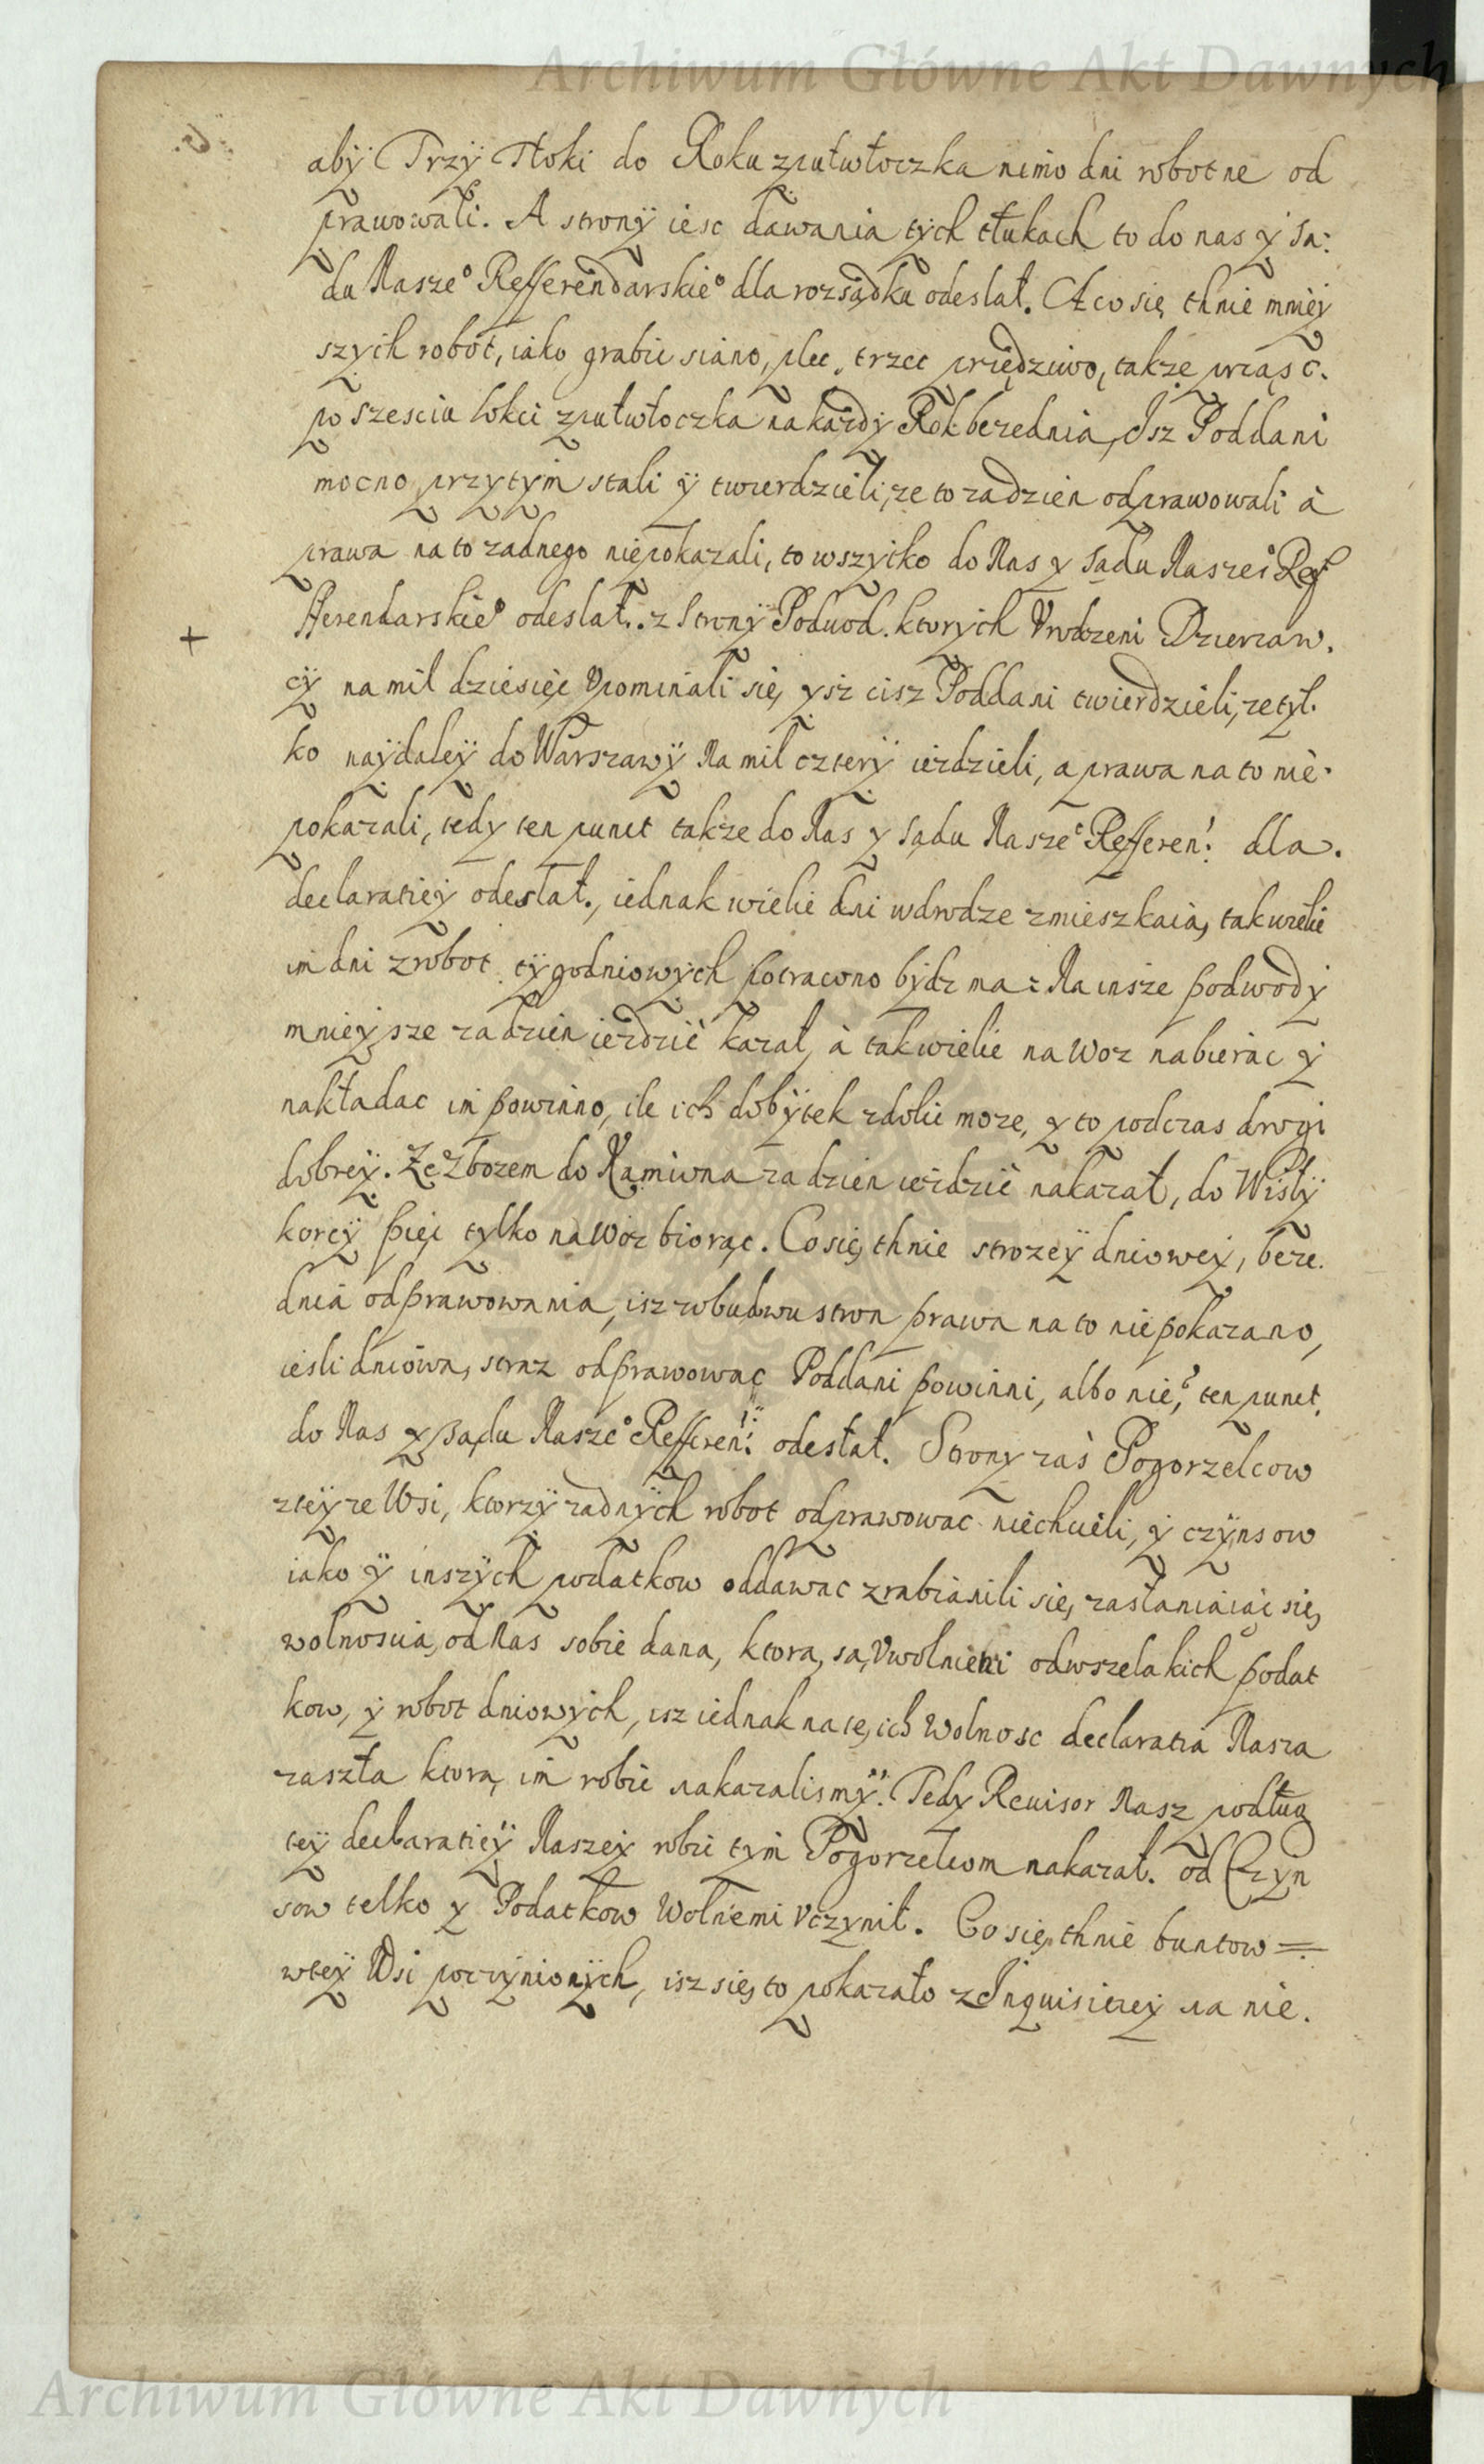 Archiwum Główne Akt Dawnych
abÿ Trzÿ Tłoki do Roku zpułwłoczka nimo dni robotne od
prawowali. A stronÿ iesc dawania tÿch tłukach to do nas y sa:
du Nasze° Refferendarskie° dla rozsądku odesłał. A co się thnie mniey
szych robot, iako grabic siano, plec, trzec przędziwo, takze prząsc.
po szesciu łokci zpułwłoczka na kazdy Rok bezednia, Isz Poddani
mocno przytym stali ÿ twierdzieli, ze to zadzien odprawowali à
prawa na to zadnego niepokazali, to wszytko do Nas y Sądu Nasze° Ref
fferendarskie° odesłał. z Stronÿ Poduod. ktorych Vrodzeni Dzierzaw.
+
cÿ na mil dziesięc Vpominali się, ysz cisz Poddani twierdzieli, ze tyl.
ko naÿdaleÿ do Warszawÿ Na mil czterÿ iezdzieli, a prawa na to nie
pokazali, tedy ten punct takze do Nas y Sądu Nasze° Refferen: dla.
declaratiey odesłał, iednak wielie dni wdrodze zmieszkaią, tak wielie
im dni zrobot tÿgodniowÿch potracono bydz ma: Na insze podwody
mnieysze zadzien iezdzic kazał, à tak wielie na woz nabierac ÿ
nakładac im powinno, ile ich dobÿtek zdolic moze, y to podczas drogi
dobreÿ. Ze Zbozem do Kamiona zadzien iezdzic nakazał, do Wisłÿ
korcÿ pięc tylko na Woz biorąc. Co się thnie strozeÿ dniowey, beze
dnia odprawowania, isz zobudwu stron prawa na to niepokazano,
iesli dniową straz odprawowac Poddani powinni, albo nie, ten punct,
do Nas y Sądu Nasze° Refferen: odesłał. Strony zas Pogorzelcow
zteÿze Wsi, ktorzÿ zadnÿch robot odprawowac niechcieli, ÿ czÿnsow
iako ÿ inszÿch podatkow oddawac zrabianili się, zasłaniaiąc się,
wolnoscią, od Nas sobie dana, ktorą, są, Vwolnieni odwszelakich podat
kow, ÿ robot dniowÿch, isz iednak na tę, ich wolnosc declaratia Nasza
zaszła ktorą im robic nakazalismÿ. Tedy Reuisor Nasz podług
teÿ declaratieÿ Naszey robic tym Pogorzelcom nakazał. od Czyn
sow telko y Podatkow Wolnemi Vczynił. Co się thnie buntow =
wteÿ Wsi poczÿnionÿch, isz się, to pokazało z Inquisitiey na nie.
Archiwum Główne Akt Dawnych